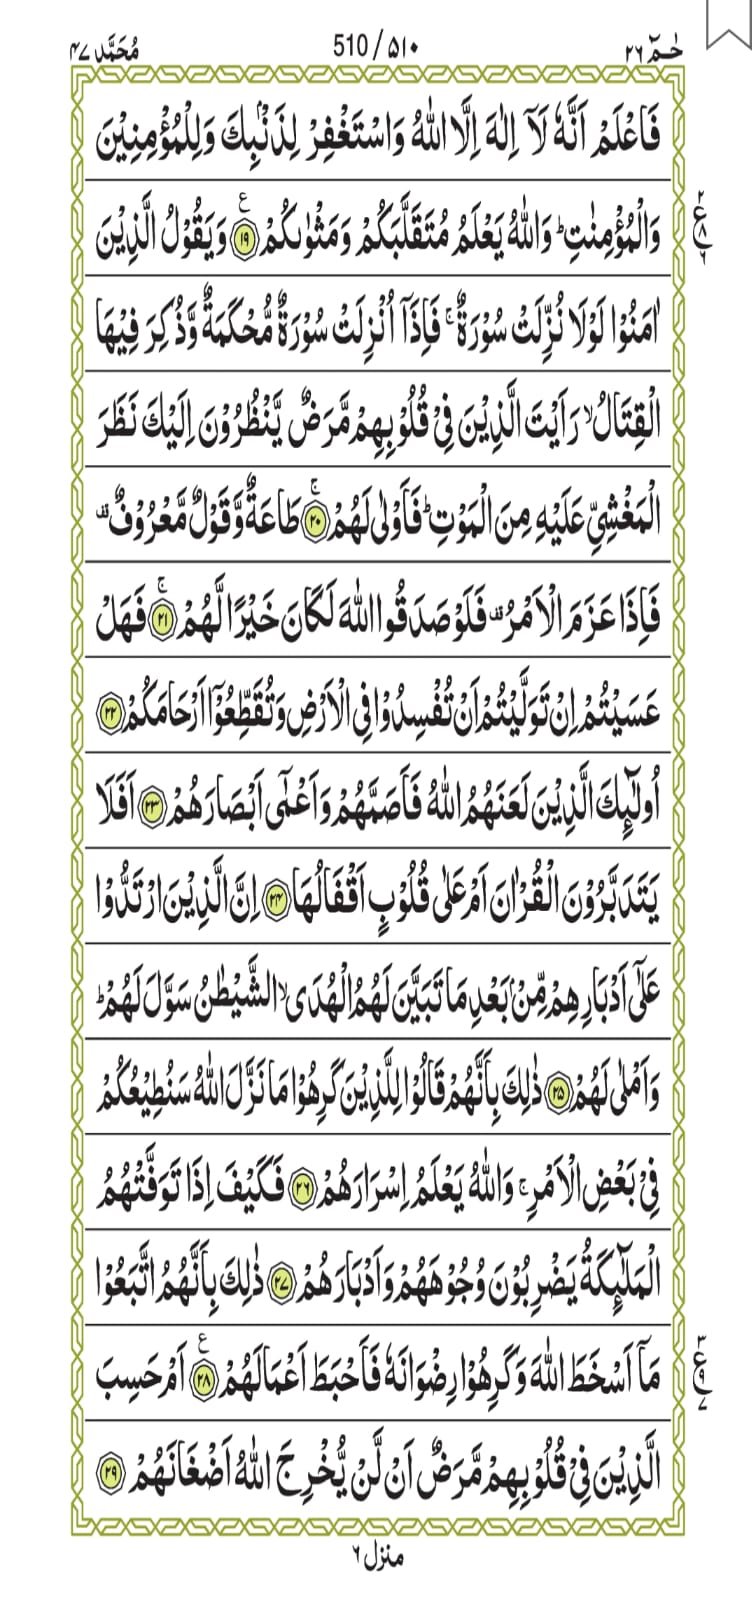 حٰمٓ ٢٦
510 / ۵۱۰
مُحَمَّد ۴۷
فَاعْلَمْ اَنَّهٗ لَآ اِلٰهَ اِلَّا اللّٰهُ وَاسْتَغْفِرْ لِذَنْۢبِكَ وَلِلْمُؤْمِنِيْنَ
وَالْمُؤْمِنٰتِ ؕ وَاللّٰهُ يَعْلَمُ مُتَقَلَّبَكُمْ وَمَثْوٰىكُمْ ۧ ۱۹ وَيَقُوْلُ الَّذِيْنَ
اٰمَنُوْا لَوْلَا نُزِّلَتْ سُوْرَةٌ ۚ فَاِذَآ اُنْزِلَتْ سُوْرَةٌ مُّحْكَمَةٌ وَّذُكِرَ فِيْهَا
الْقِتَالُ ۙ رَاَيْتَ الَّذِيْنَ فِيْ قُلُوْبِهِمْ مَّرَضٌ يَّنْظُرُوْنَ اِلَيْكَ نَظَرَ
الْمَغْشِيِّ عَلَيْهِ مِنَ الْمَوْتِ ؕ فَاَوْلٰى لَهُمْ ۚ ۲۰ طَاعَةٌ وَّقَوْلٌ مَّعْرُوْفٌ ۫
فَاِذَا عَزَمَ الْاَمْرُ ۫ فَلَوْ صَدَقُوا اللّٰهَ لَكَانَ خَيْرًا لَّهُمْ ۚ ۲۱ فَهَلْ
عَسَيْتُمْ اِنْ تَوَلَّيْتُمْ اَنْ تُفْسِدُوْا فِي الْاَرْضِ وَتُقَطِّعُوْٓا اَرْحَامَكُمْ ۲۲
اُولٰٓئِكَ الَّذِيْنَ لَعَنَهُمُ اللّٰهُ فَاَصَمَّهُمْ وَاَعْمٰٓى اَبْصَارَهُمْ ۲۳ اَفَلَا
يَتَدَبَّرُوْنَ الْقُرْاٰنَ اَمْ عَلٰى قُلُوْبٍ اَقْفَالُهَا ۲۴ اِنَّ الَّذِيْنَ ارْتَدُّوْا
عَلٰٓى اَدْبَارِهِمْ مِّنْۢ بَعْدِ مَا تَبَيَّنَ لَهُمُ الْهُدَى ۙ الشَّيْطٰنُ سَوَّلَ لَهُمْ ؕ
وَاَمْلٰى لَهُمْ ۲۵ ذٰلِكَ بِاَنَّهُمْ قَالُوْا لِلَّذِيْنَ كَرِهُوْا مَا نَزَّلَ اللّٰهُ سَنُطِيْعُكُمْ
فِيْ بَعْضِ الْاَمْرِ ۚ وَاللّٰهُ يَعْلَمُ اِسْرَارَهُمْ ۲۶ فَكَيْفَ اِذَا تَوَفَّتْهُمُ
الْمَلٰٓئِكَةُ يَضْرِبُوْنَ وُجُوْهَهُمْ وَاَدْبَارَهُمْ ۲۷ ذٰلِكَ بِاَنَّهُمُ اتَّبَعُوْا
مَآ اَسْخَطَ اللّٰهَ وَكَرِهُوْا رِضْوَانَهٗ فَاَحْبَطَ اَعْمَالَهُمْ ۧ ۲۸ اَمْ حَسِبَ
الَّذِيْنَ فِيْ قُلُوْبِهِمْ مَّرَضٌ اَنْ لَّنْ يُّخْرِجَ اللّٰهُ اَضْغَانَهُمْ ۲۹
۲ ع ۸ ۶
۳ ع ۹ ۷
منزل ۶